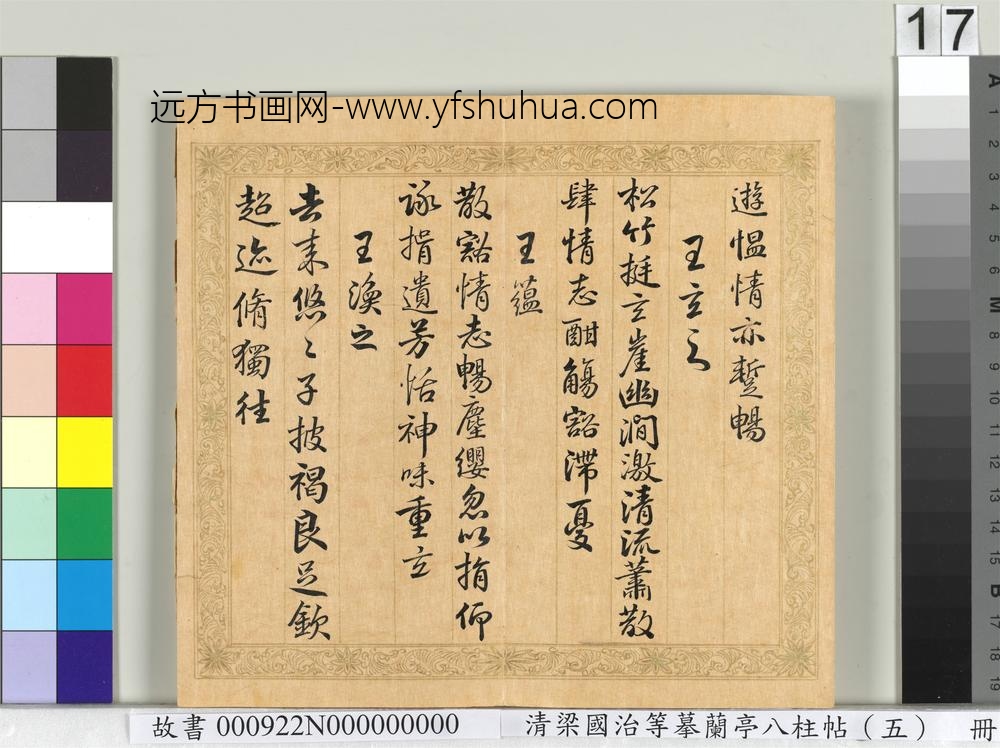 远方书画网-www.yfshuhua.com
17
遊愠情亦蹔暢
王玄之
松竹挺立崖幽澗激清流蕭散
肆情志酣觴豁滯憂
王蘊
散豁情志暢塵纓忽以捐仰
詠揖遺芳怡神味重玄
王渙之
去来悠〻子披褐良足欽
超迹脩獨往
故書 000922N000000000
清梁國治等摹蘭亭八柱帖（五） 冊
A 1 2 3 4 5 6 M 8 9 10 11 12 13 14 15 B 17 18 19